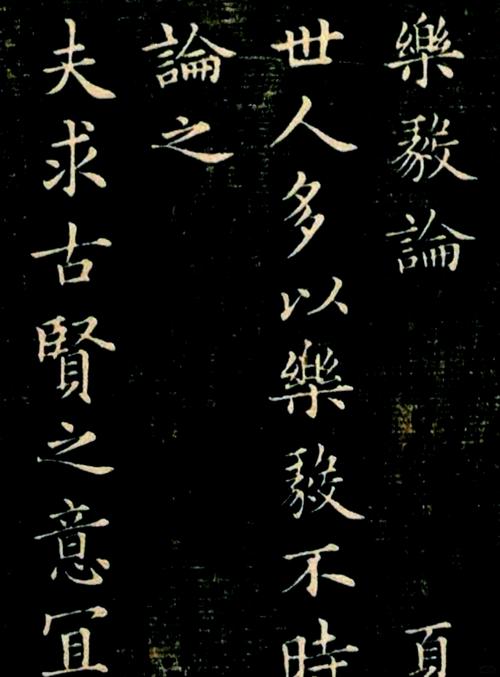 樂毅論
世人多以樂毅不時
論之
夫求古賢之意宜